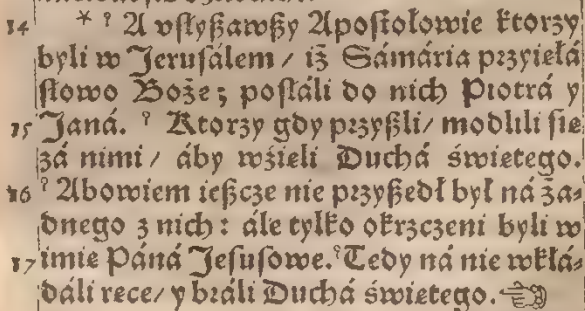 14 * ˀ A vſłyßawßy Apoſtołowie ktorzy
byli w Jeruſálem / iż Sámária przyięłá
ſłowo Boże; poſłáli do nich Piotrá y
15 Janá. ˀ Ktorzy gdy przyßli / modlili ſię
zá nimi / áby wźięli Duchá świętego.
16 ˀ Abowiem ießcze nie przyßedł był ná ża⸗
dnego z nich : ále tylko okrzczeni byli w
17 imię Páná Jeſuſowe. ˀ Tedy ná nie wkłá⸗
dáli ręce / y bráli Duchá świętego. ☜